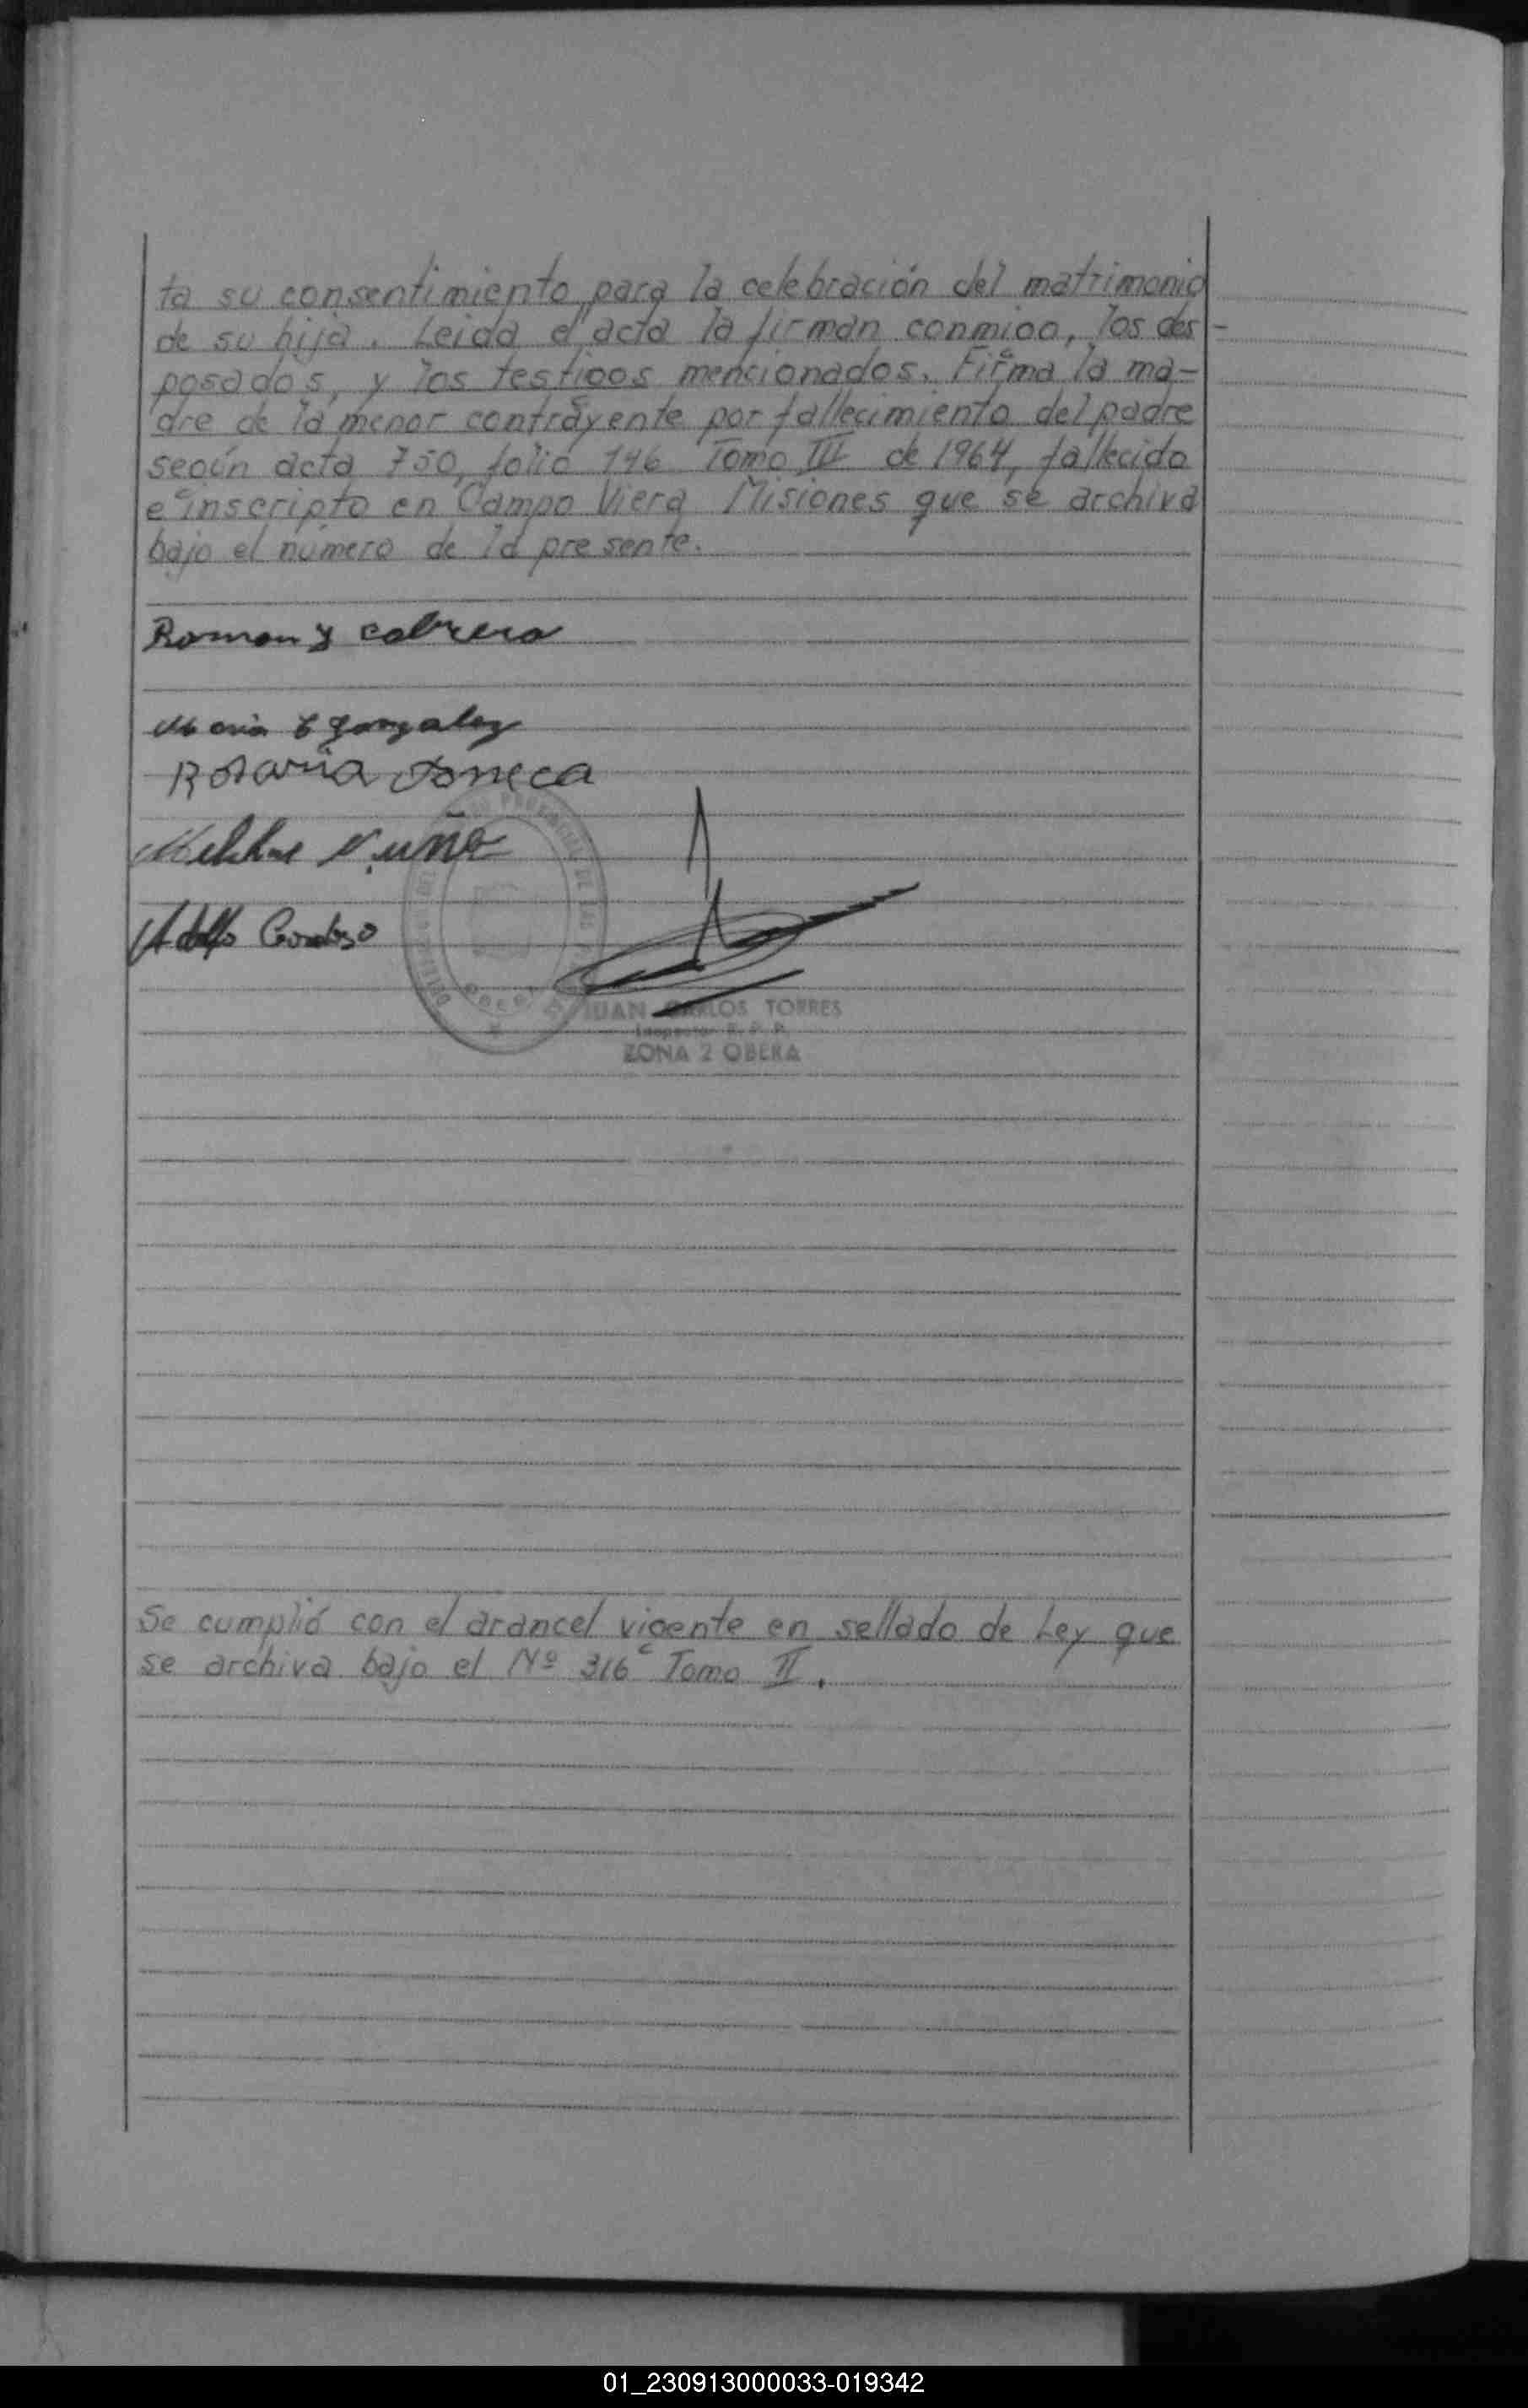 ta su consentimiento para la celebración del matrimonio
de su hija. Leida el acta la firman conmigo, los des-
posados, y los testigos mencionados. Firma la ma-
dre de la menor contrayente por fallecimiento del padre
según acta 750, folio 146 Tomo III de 1964, fallecido
e inscripto en Campo Viera Misiones que se archiva
bajo el número de la presente.
Ramon y cabrera
Maria E gonzalez
Rosaria Foneca
Nuñe
Adolfo Cardoso
JUAN CARLOS TORRES
Inspector R. P. P.
ZONA 2 OBERA
Se cumplió con el arancel vigente en sellado de Ley que
se archiva bajo el Nº 316 Tomo II.
01_230913000033-019342